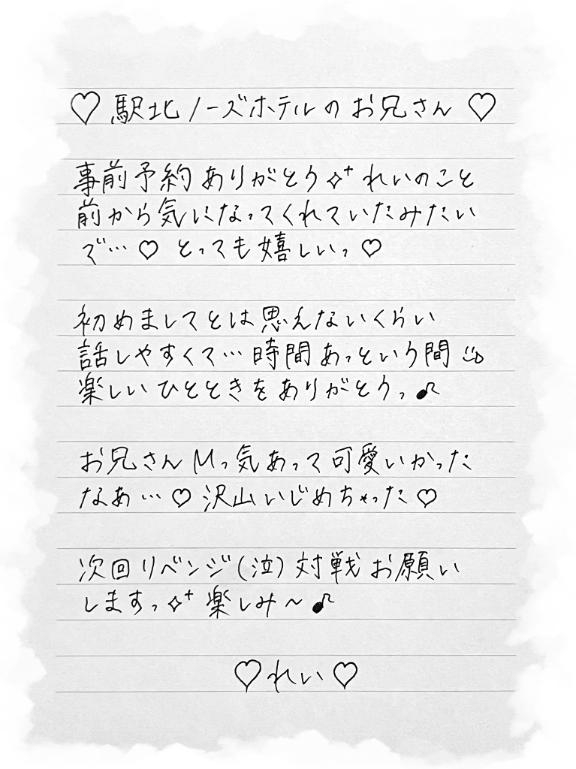 ♡ 駅北ノーズホテルのお兄さん ♡
事前予約ありがとう✧⁺ れいのこと
前から気になってくれていたみたい
で…♡ とっても嬉しいっ♡
初めましてとは思えないくらい
話しやすくて…時間あっという間
楽しいひとときをありがとうっ♪
お兄さんMっ気あって可愛いかった
なあ…♡ 沢山いじめちゃった♡
次回リベンジ(泣)対戦お願い
しますっ✧⁺ 楽しみ〜♪
♡れい♡